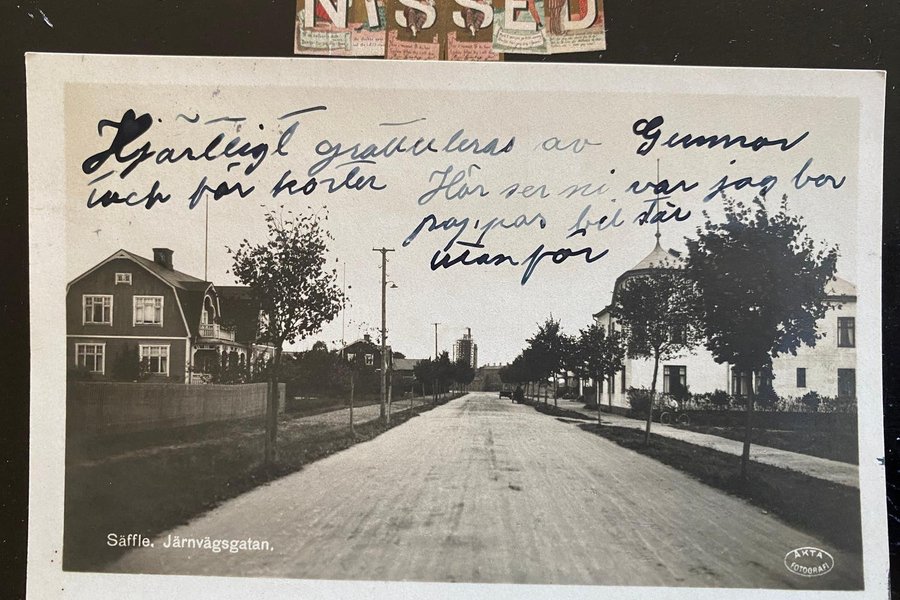 NISSED
Hjärtligt gratuleras av Gunnar
och för kortet Här ser ni var jag bor
pappas bil står
utanför
Säffle. Järnvägsgatan.
ÄKTA
FOTOGRAFI